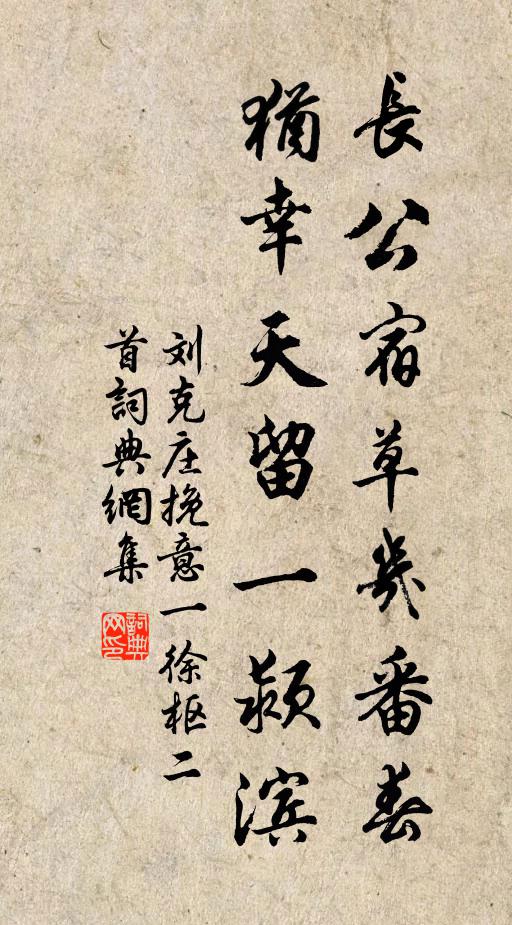 長公宿草幾番春
猶幸天留一颍滨
刘克庄挽意一徐枢二
首詞典網集
詞典网印